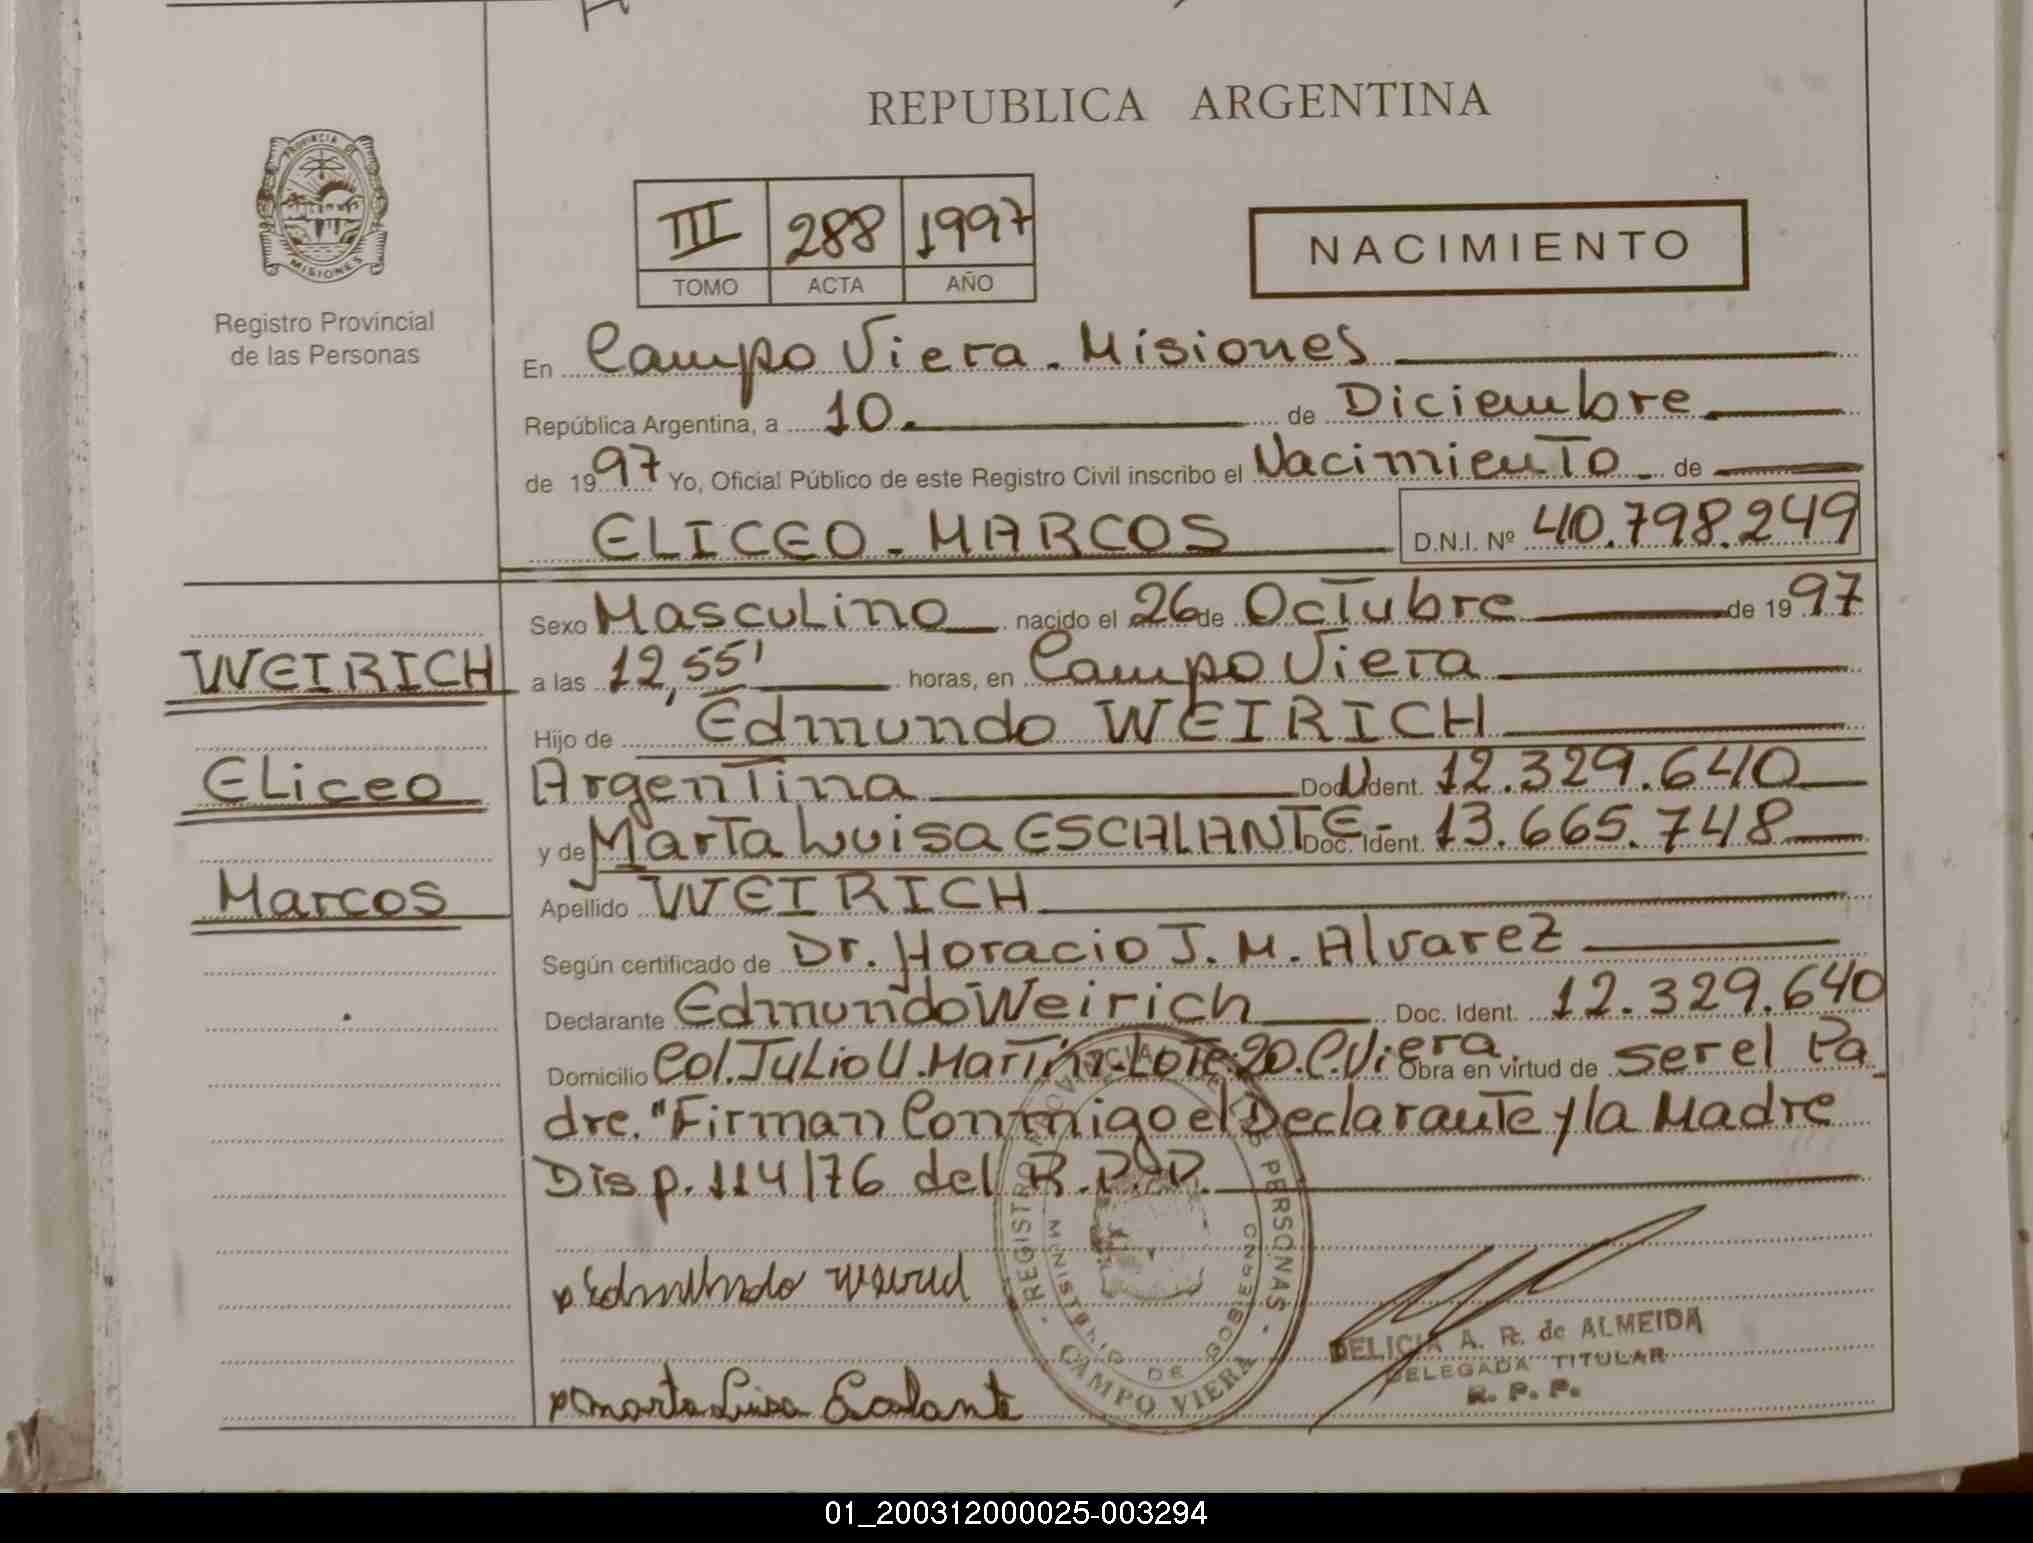 REPUBLICA ARGENTINA
PROVINCIA DE
MISIONES
Registro Provincial
de las Personas
III 288 1997
TOMO ACTA AÑO
NACIMIENTO
En Campo Viera - Misiones
República Argentina, a 10 de Diciembre
de 1997 Yo, Oficial Público de este Registro Civil inscribo el Nacimiento de
ELICEO - MARCOS D.N.I. Nº 40.798.249
WEIRICH
Eliceo
Marcos
Sexo Masculino nacido el 26 de Octubre de 1997
a las 12,55' horas, en Campo Viera
Hijo de Edmundo WEIRICH
Argentina Doc. Ident. 12.329.640
y de Marta Luisa ESCALANTE - Doc. Ident. 13.665.748
Apellido WEIRICH
Según certificado de Dr. Horacio J. M. Alvarez
Declarante Edmundo Weirich Doc. Ident. 12.329.640
Domicilio Col. Julio U. Martín - Lote: 20. C. Viera. Obra en virtud de ser el Pa
dre. "Firman Conmigo el Declarante y la Madre
Disp. 114/76 del R.P.P.
Edmundo
Marta Luisa Escalante
REGISTRO PROVINCIAL DE LAS PERSONAS
MINISTERIO DE GOBIERNO
CAMPO VIERA
DELICIA A. R. de ALMEIDA
DELEGADA TITULAR
R. P. P.
01_200312000025-003294